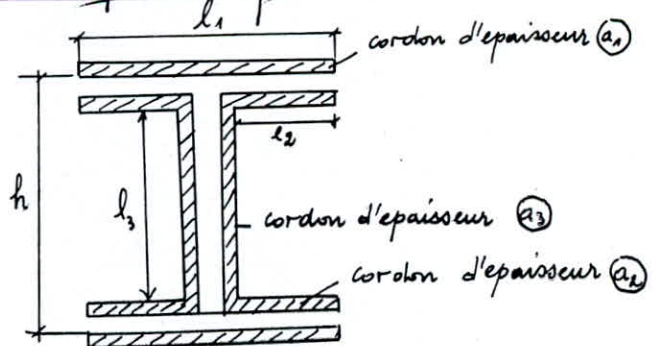 l₁
cordon d'epaisseur a₁
l₂
h
l₃
cordon d'epaisseur a₃
cordon d'epaisseur a₂